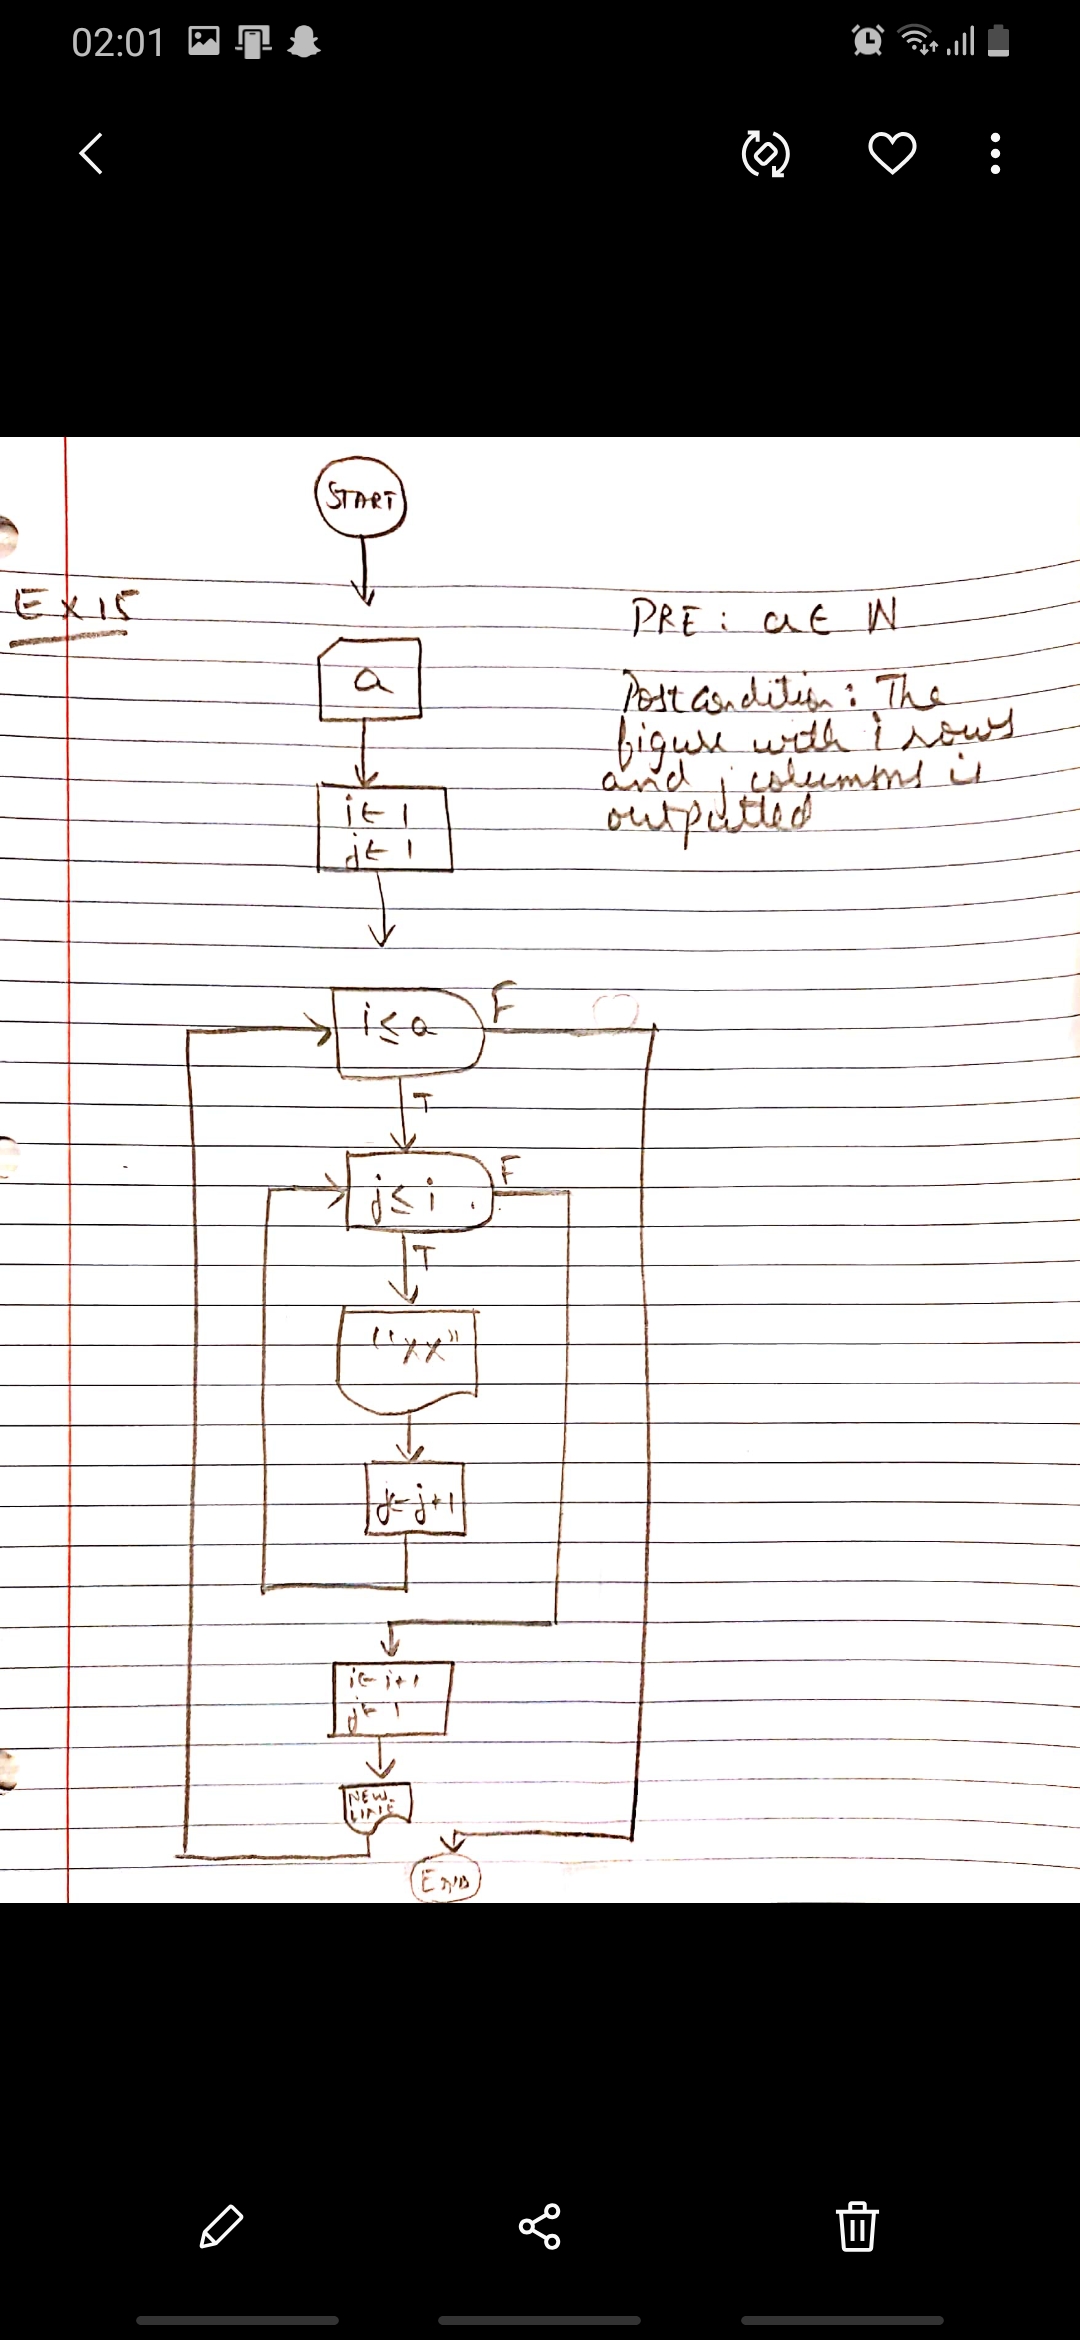 02:01
START
EX15
PRE : a ∈ ℕ
a
Postcondition : The
figure with i rows
and j columns is
outputted
i ← 1
j ← 1
i ≤ a
F
T
j ≤ i
F
T
"XX"
j ← j+1
i ← i+1
j ← 1
NEW-
LINE
END